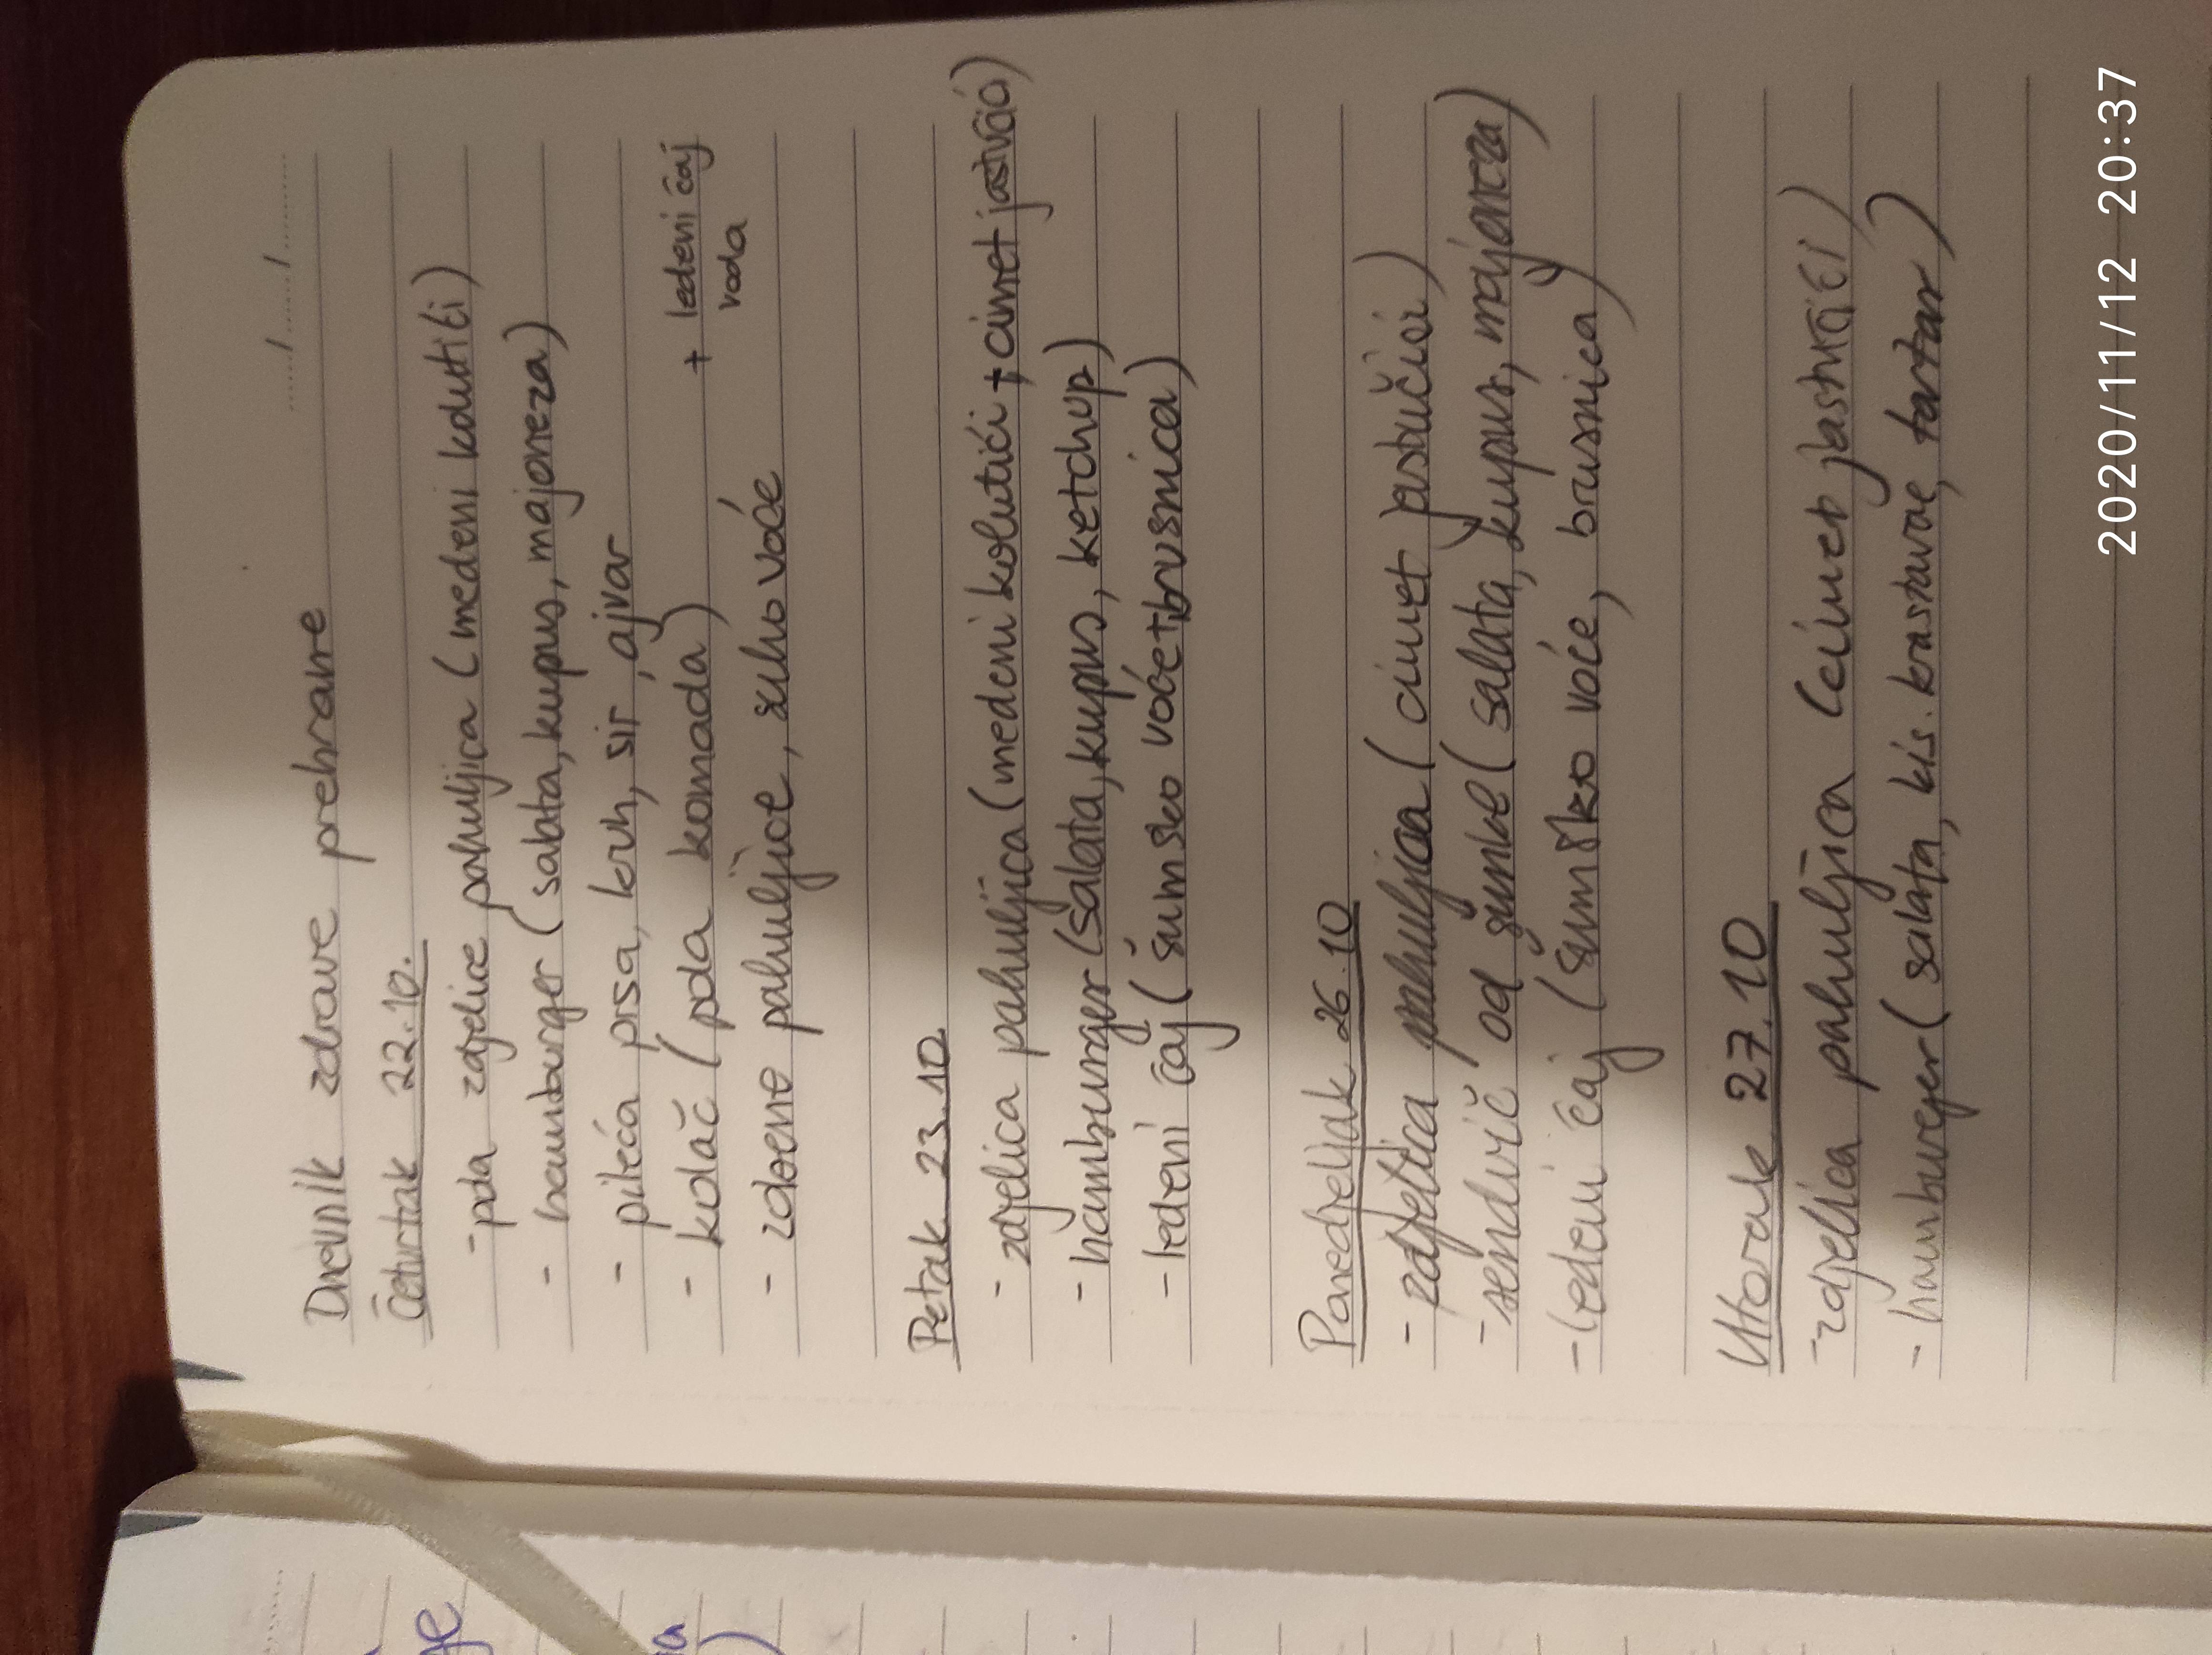 Dnevnik zdrave prehrane
Četvrtak 22.10.
- pola zdjelice pahuljica (medeni kolutići)
- hamburger (salata, kupus, majoneza)
- pileća prsa, kruh, sir, ajvar
- kolač (pola komada) + ledeni čaj
voda
- zobene pahuljice, suho voće
Petak 23.10
- zdjelica pahuljica (medeni kolutići + cimet jastučići)
- hamburger (salata, kupus, ketchup)
- ledeni čaj (šumsko voće+brusnica)
Ponedjeljak 26.10
- zdjelica pahuljica (cimet jastučići)
- sendvič od šunke (salata, kupus, majoneza)
- ledeni čaj (šumsko voće, brusnica)
Utorak 27.10
- zdjelica pahuljica (cimet jastučići)
- hamburger (salata, kis. krastavac, tartar)
2020/11/12 20:37